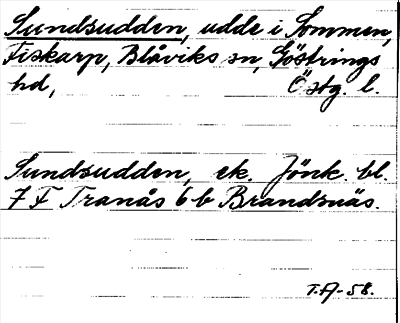 Sundsudden, udde i Sommen,
Fiskarp, Blåviks sn, Göstrings
hd, Östg. l.
Sundsudden, ek. Jönk. bl.
7 F Tranås 6 b Brandsnäs.
T.A-58.